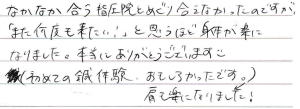 なかなか合う指圧院とめぐり合うなかったのですが
「また何度も来たい!」と思うほど身体が楽に
なりました。本当にありがとうございます
(初めての鍼体験、おもしろかったです。)
肩も楽になりました!